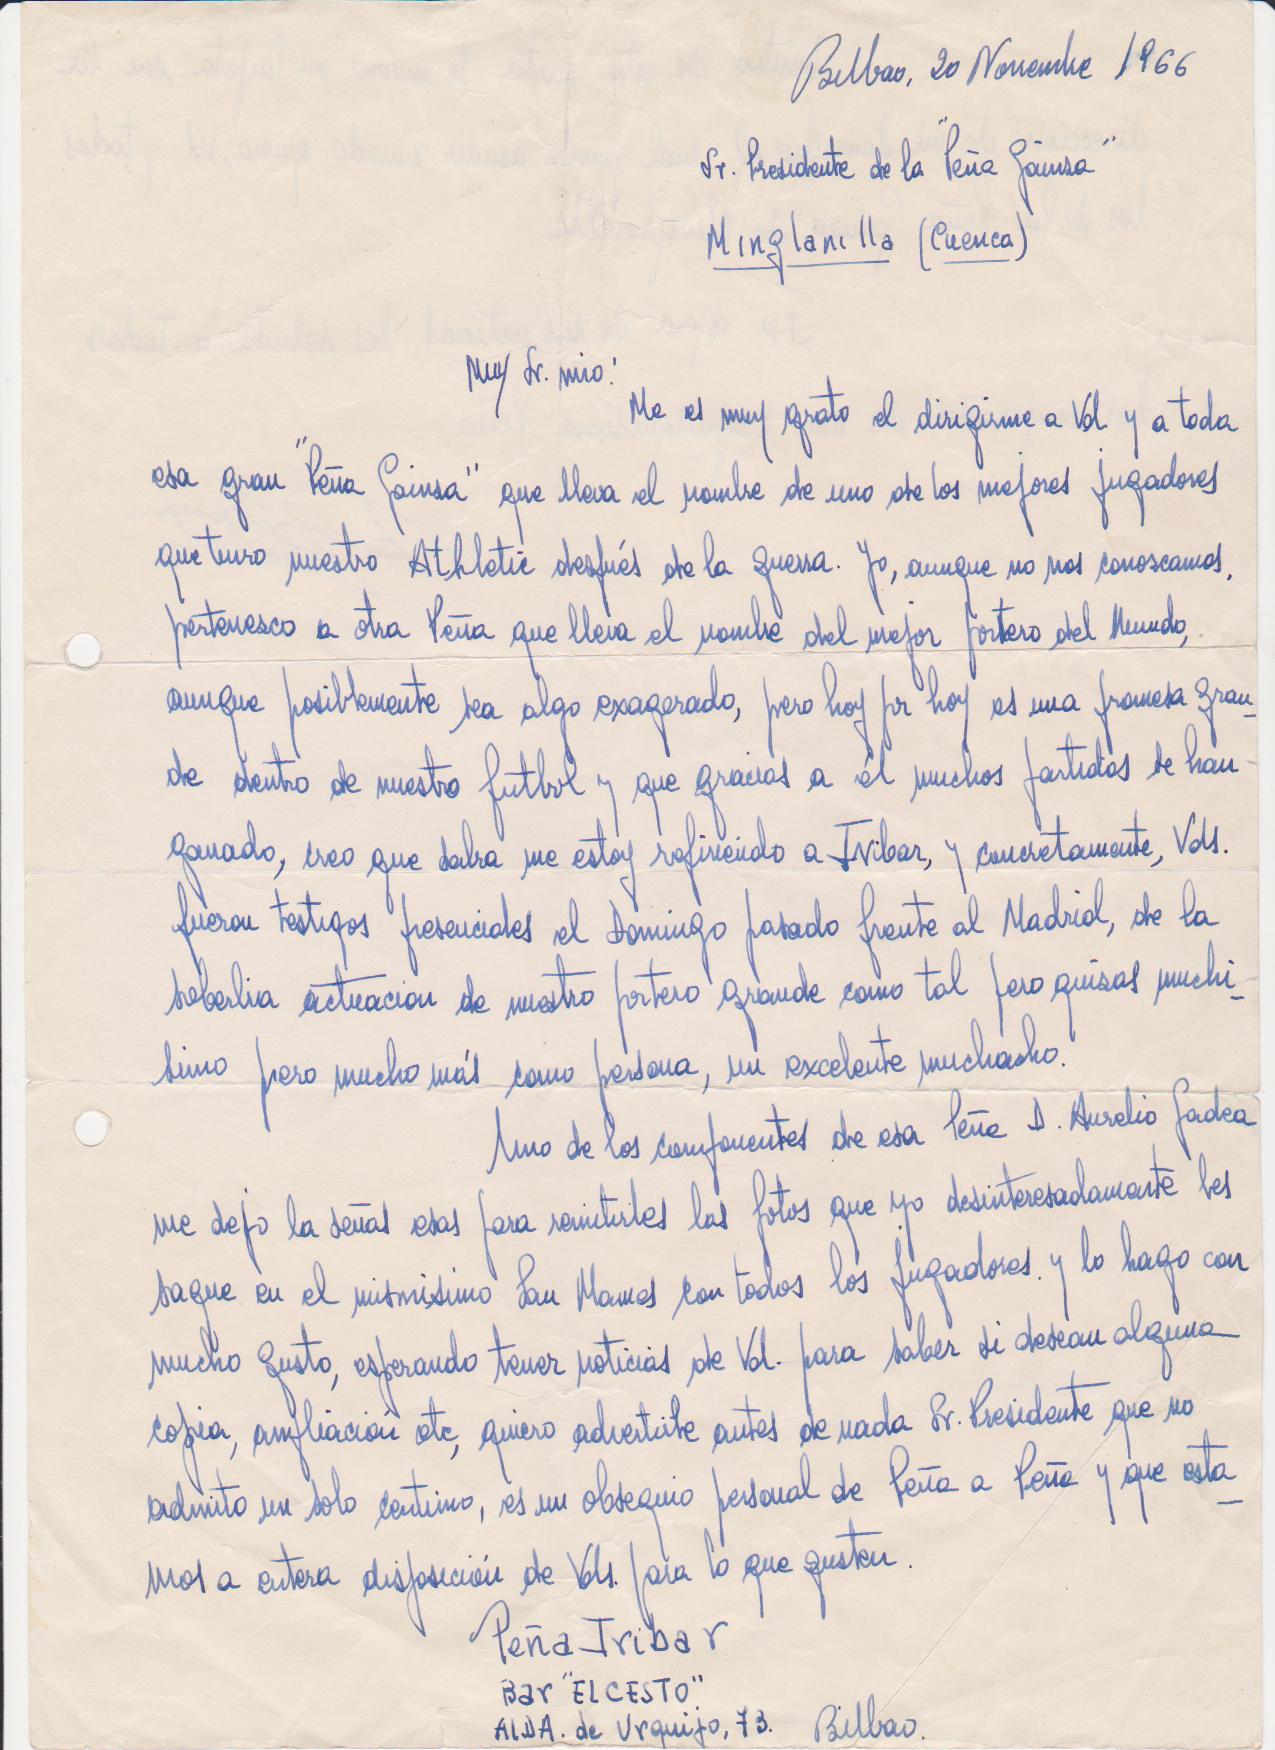 Bilbao, 20 Noviembre 1966
Sr. Presidente de la "Peña Gainsa"
Minglanilla (Cuenca)
Muy Sr. mio:
Me es muy grato el dirigirme a Vd. y a toda
esa gran "Peña Gainsa" que lleva el nombre de uno de los mejores jugadores
que tuvo nuestro Athletic después de la guerra. Yo, aunque no nos conoscamos,
pertenesco a otra Peña que lleva el nombre del mejor portero del Mundo,
aunque posiblemente sea algo exagerado, pero hoy por hoy es una promesa gran-
de dentro de nuestro futbol y que gracias a él muchos partidos se han
ganado, creo que sabra me estoy refiriendo a Iribar, y concretamente, Vds.
fueron testigos presenciales el Domingo pasado frente al Madrid, de la
soberbia actuacion de nuestro portero grande como tal pero quizas muchi-
simo pero mucho más como persona, un excelente muchacho.
Uno de los componentes de esa Peña D. Aurelio Gadea
me dejo la señas esas para remitirles las fotos que yo desinteresadamente les
saque en el mismisimo San Mames con todos los jugadores y lo hago con
mucho gusto, esperando tener noticias de Vd. para saber si desean alguna
copia, ampliación etc, quiero advertirle antes de nada Sr. Presidente que no
admito un solo centimo, es un obsequio personal de Peña a Peña y que esta-
mos a entera disposición de Vds. para lo que gusten.
Peña Iribar
Bar "EL CESTO"
ALDA. de Urquijo, 73. Bilbao.